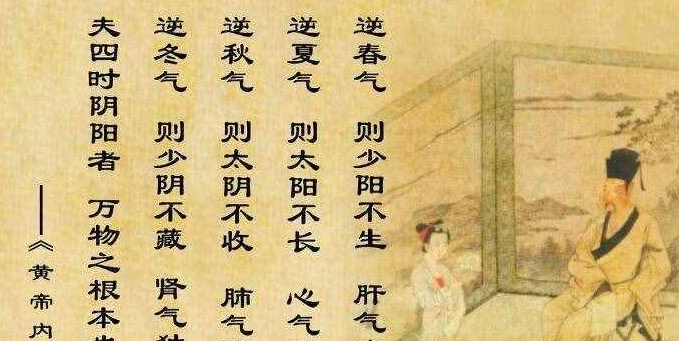 逆春气 则少阳不生 肝气
逆夏气 则太阳不长 心气
逆秋气 则太阴不收 肺气
逆冬气 则少阴不藏 肾气
夫四时阴阳者 万物之根本
——《黄帝内